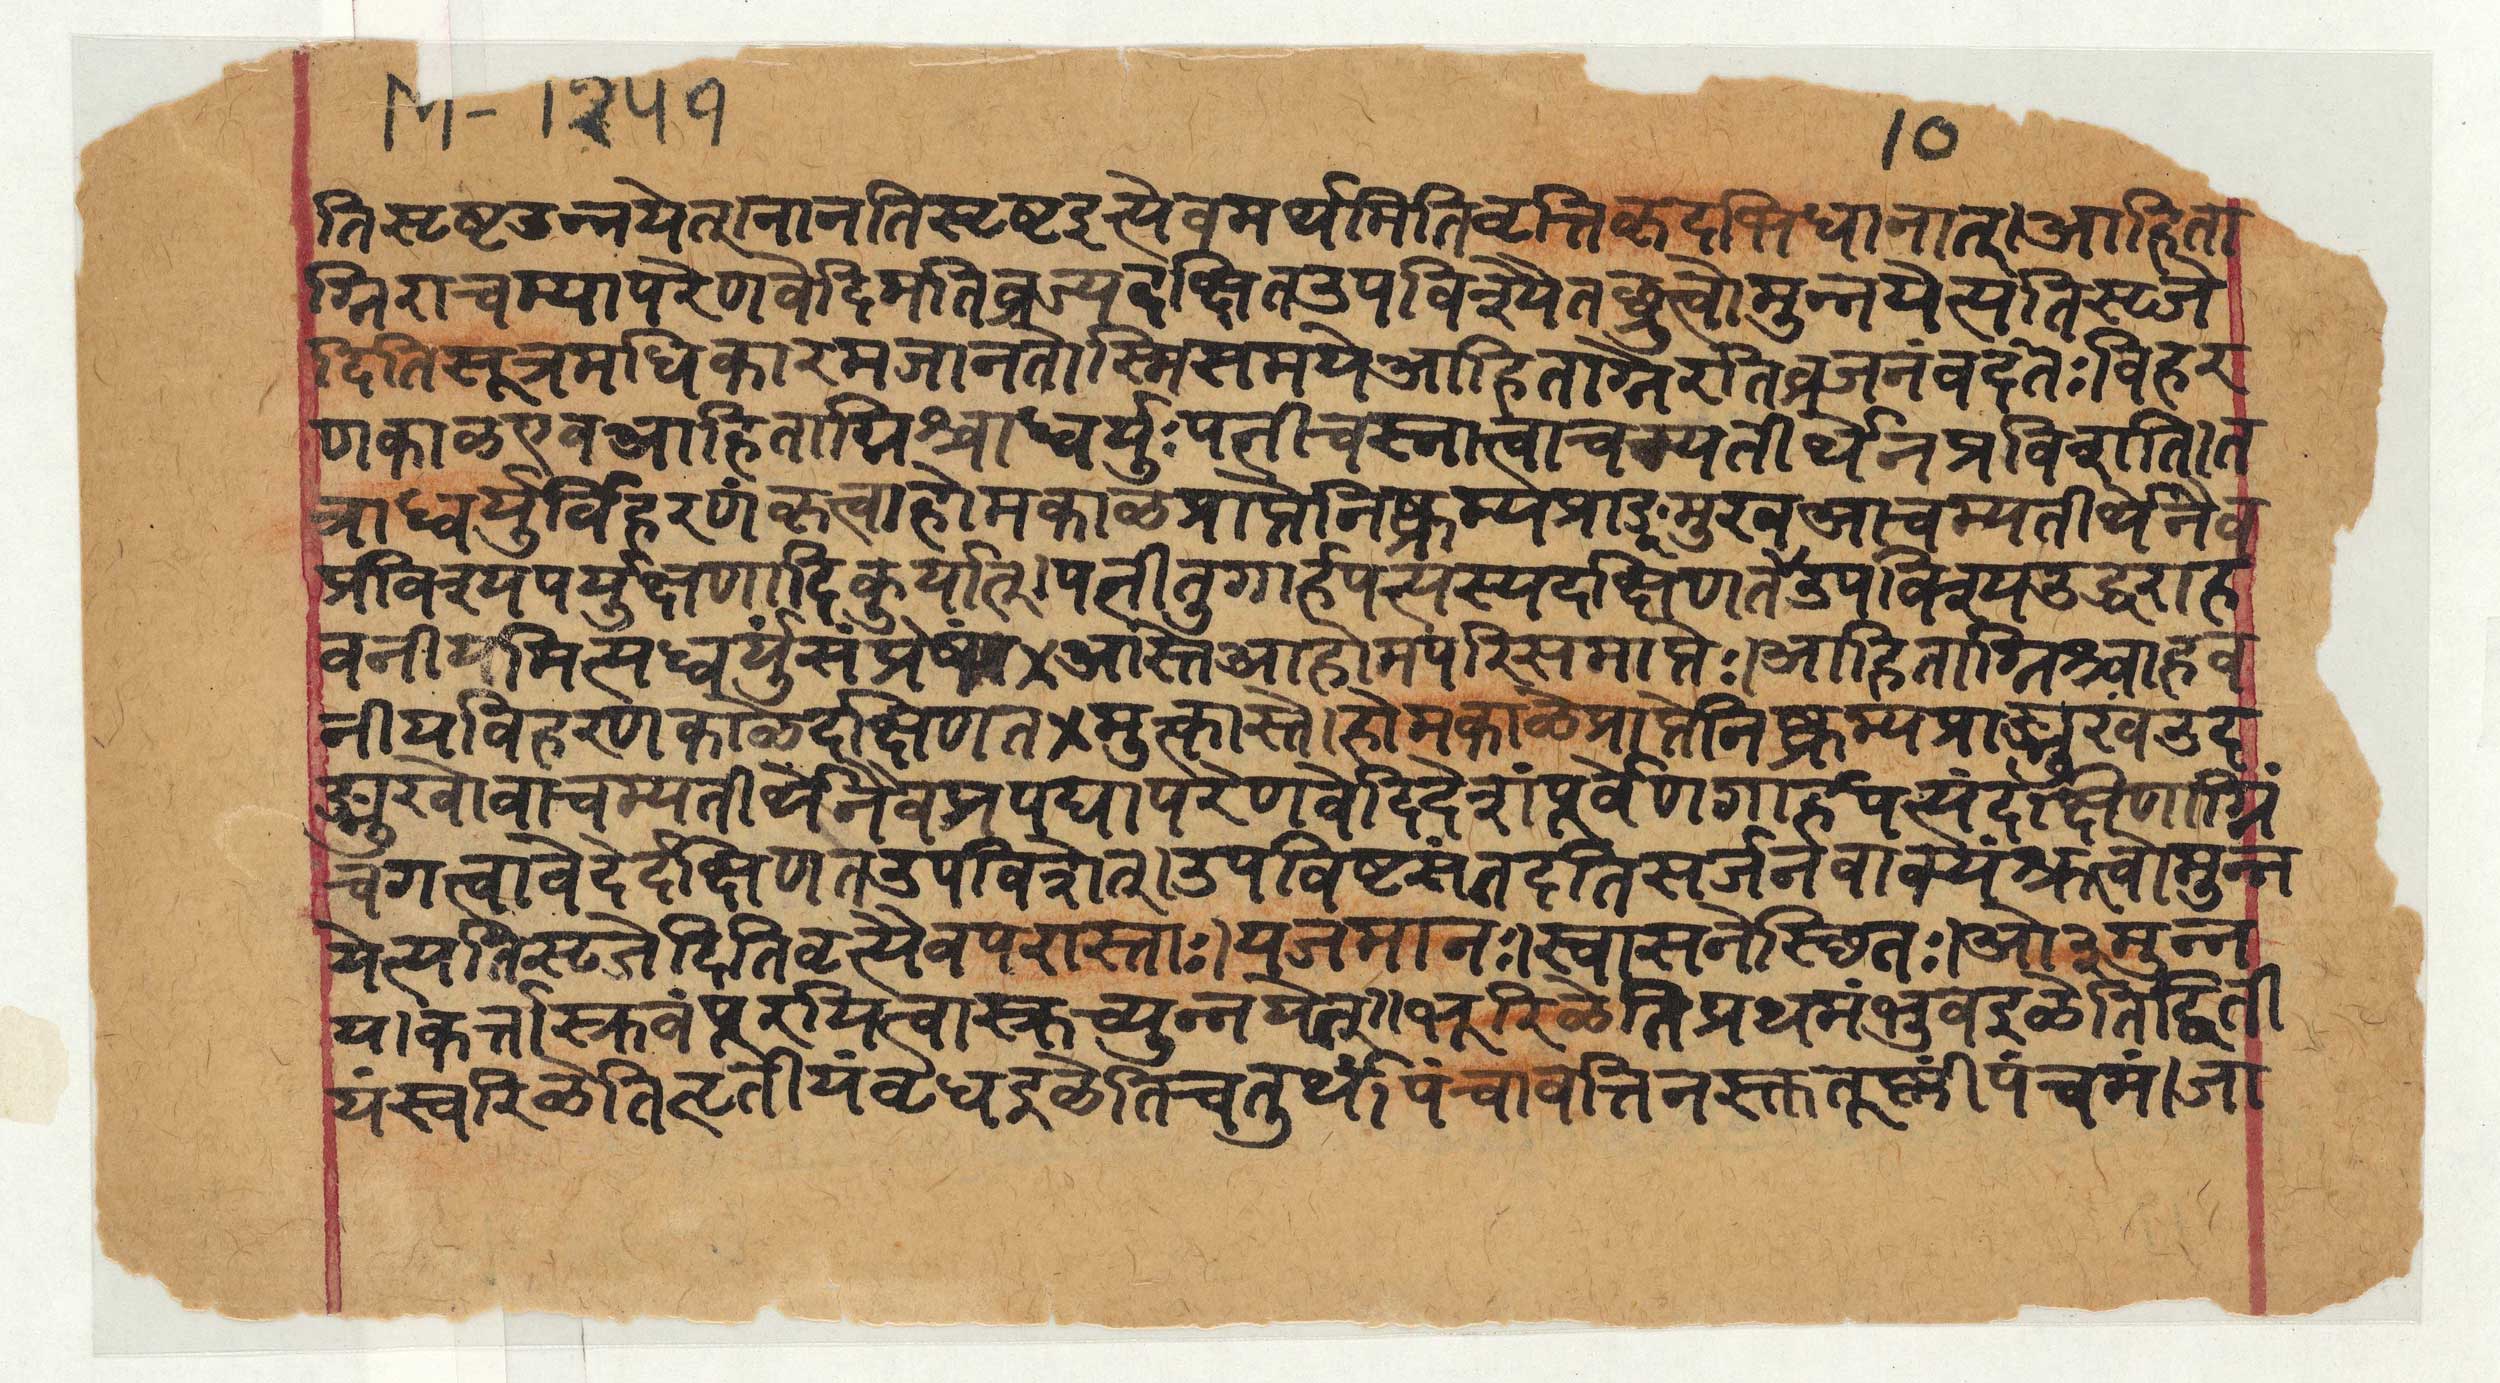 M-1२५१
10
तिसृष्टउन्नयेत्।नानतिसृष्टइत्येवमर्थमितिवृत्तिकृदभिधानात्।आहिता
ग्निराचम्यापरेणवेदिमतिव्रज्यदक्षिणतउपविश्यैतछ्रुत्वोमुन्नयेत्यतिसृजे
दितिसूत्रमधिकारमजानतोस्मिसमयेआहिताग्नेरतिव्रजनंवदंतेः विहर
णकाळएवआहिताग्निश्चाध्वर्युःपत्नीचस्नात्वाचम्यतीर्थेनप्रविशाति।त
त्राध्वर्युर्विहरणंकृत्वाहोमकाळेप्राप्तेनिष्क्रम्यप्राङ्मुखआचम्यतीर्थेनैव
प्रविश्यपर्युक्षणादिकुर्यात्।पत्नीतुगार्हपत्यस्यदक्षिणतउपविश्यउद्धराह
वनीयमित्यध्वर्युंसंप्रेष्यआस्तेआहोमपरिसमाप्तेः।आहिताग्निश्चाहव
नीयविहरणकाळेदक्षिणतमुत्कास्ते।होमकाळेप्राप्तेनिष्क्रम्यप्राङ्मुखउद
ङ्मुखोवाचम्यतीर्थेनैवप्रपद्यापरेणवेदिदेशंपूर्वेणगार्हपत्यंदक्षिणाग्निं
चगत्वावेदेर्दक्षिणतउपविशेत्।उपविष्टस्तदतिसर्जनवाक्यंश्रुत्वोमुन्न
येत्यतिसृजेदितिवृत्त्यैवपरास्ताः।यजमानः।स्वासनेस्थितः।ओ३मुन्न
य।कर्त्तास्रुवंपूरयित्वास्रुच्युन्नयेत्॥भूरिळेतिप्रथमंभुवइळेतिद्विती
यंस्वरिळेतितृतीयंवृधइळेतिचतुर्थं।पंचावत्तिनस्तुतूष्णींपंचमं।जा